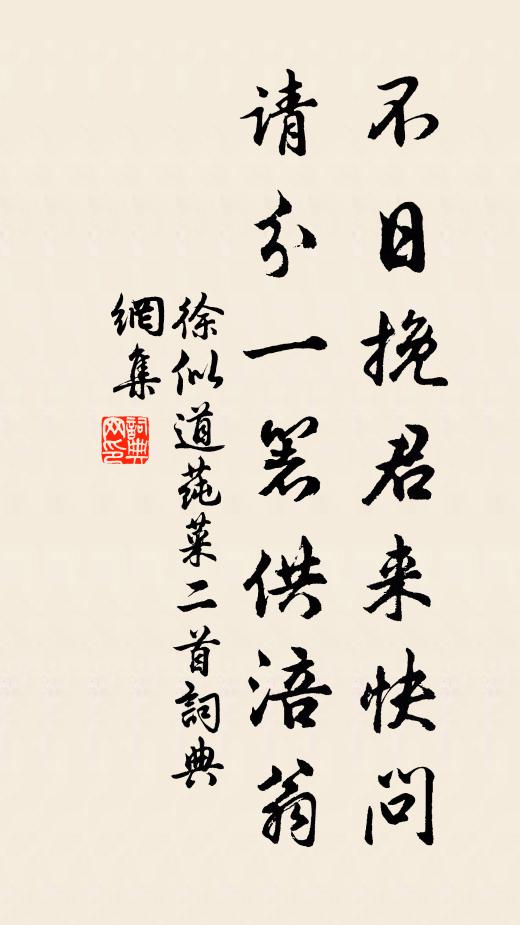 不日挽君来快阁
请分一箸供涪翁
徐似道莼菜二首詞典
網集
詞典
网印